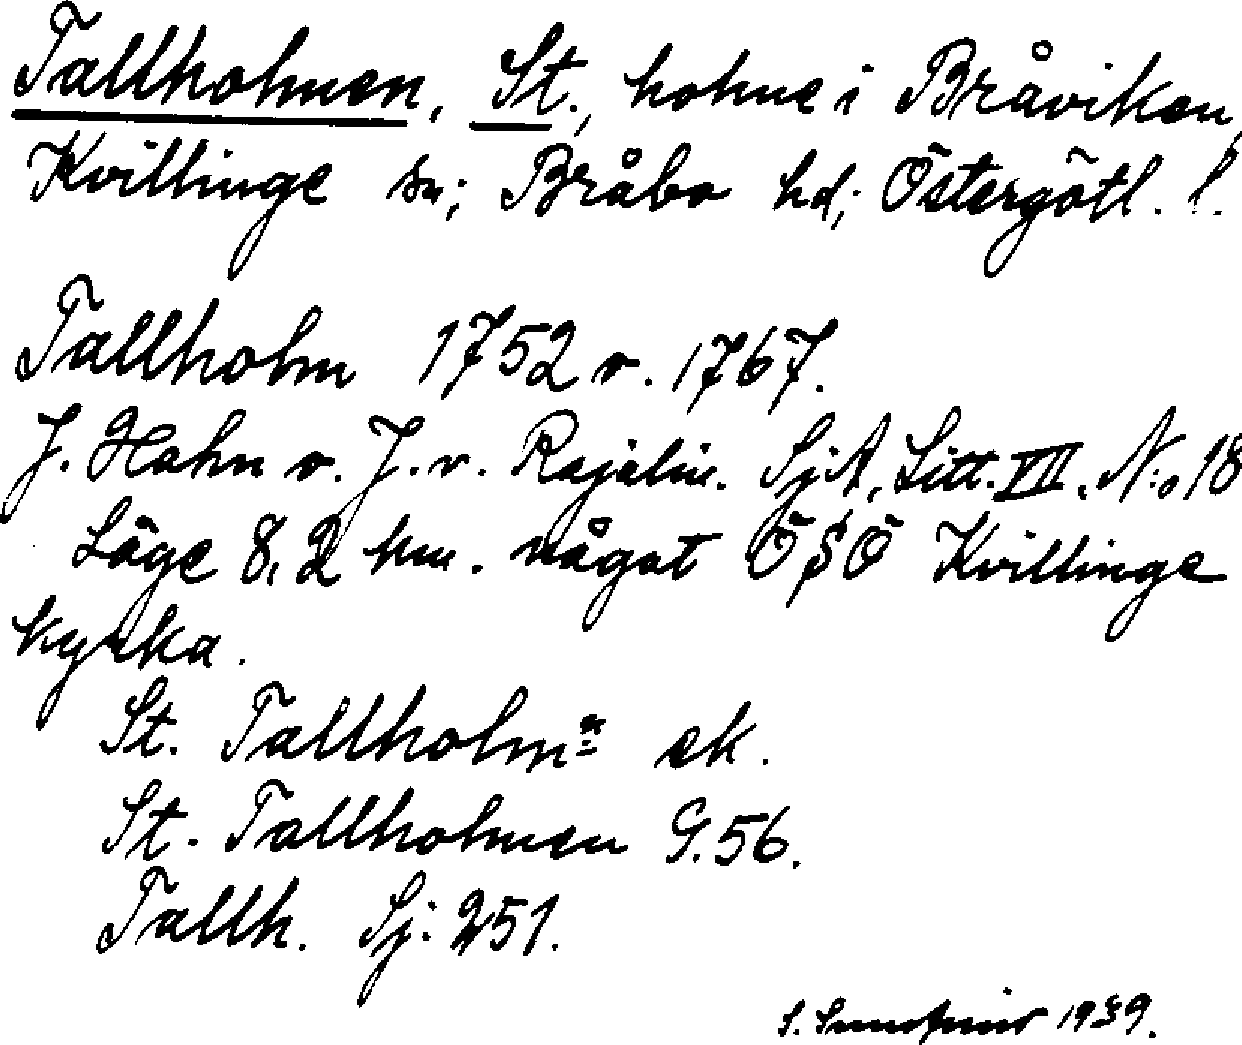 Tallholmen, St., holme i Bråviken,
Kvillinge sn; Bråbo hd; Östergötl. l.
Tallholm 1752 o. 1767.
J. Hahn o. J. v. Rajalin. SjA, Litt. VII. N:o 18
Läge 8,2 km. något ÖSÖ Kvillinge
kyrka.
St. Tallholmn ek.
St. Tallholmen G.56.
Tallh. Sj: 251.
S. 1939.